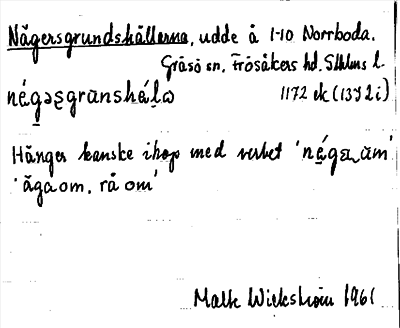 Nägersgrundshällarna, udde å 1-10 Norrboda.
Gräsö sn, Frösåkers hd. Sthlms l.
négəʂgrᴜnshálɷ 1172 ek (13J 2i)
Hänger kanske ihop med verbet 'négɑ, ᴜm'
'äga om, rå om'
Malte Wickström 1961